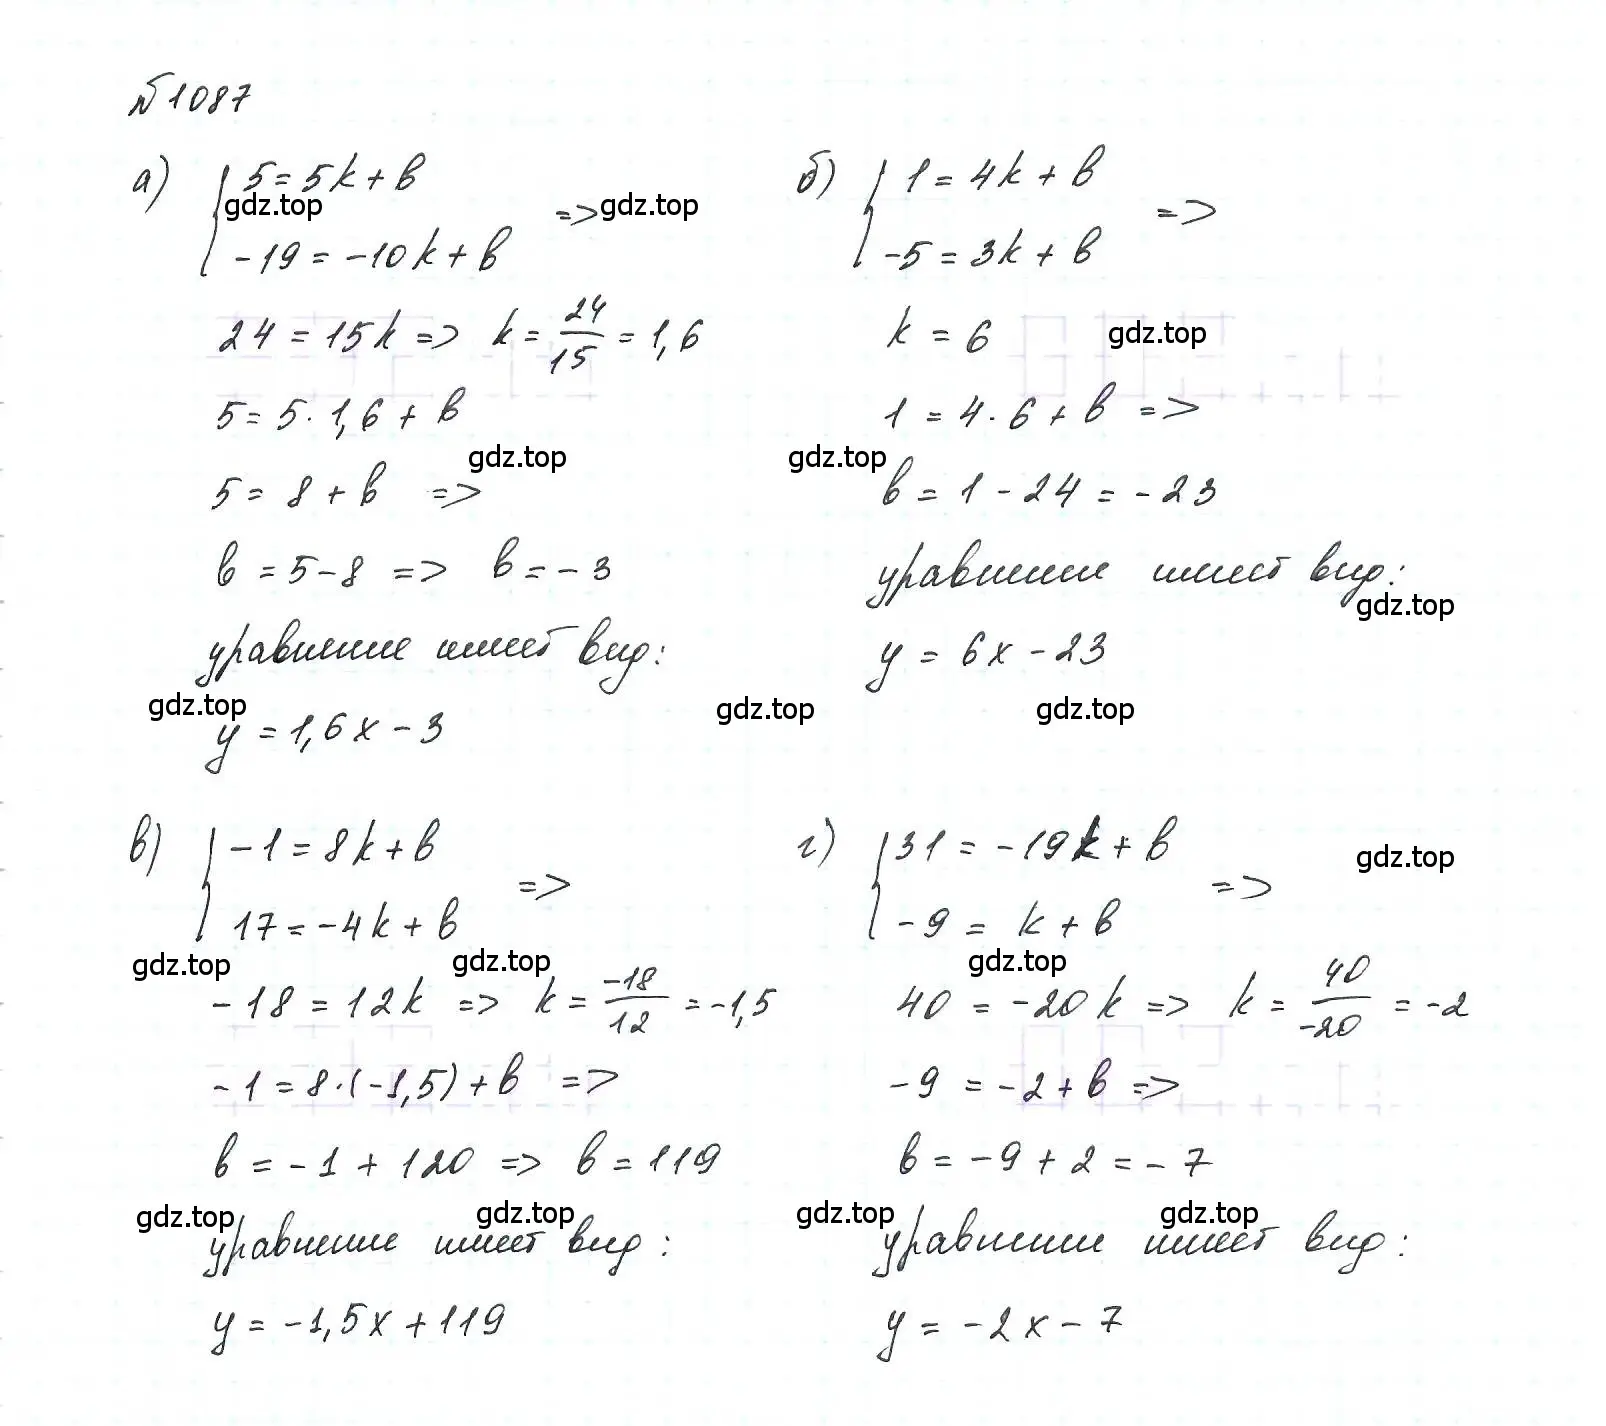 №1087
а) { 5 = 5k + b
gdz.top => gdz.top
-19 = -10k + b
24 = 15k => k = 24/15 = 1,6
5 = 5 · 1,6 + b
gdz.top
5 = 8 + b =>
b = 5 - 8 => b = -3
уравнение имеет вид:
gdz.top
y = 1,6x - 3
б) { 1 = 4k + b
=>
-5 = 3k + b
k = 6 gdz.top
1 = 4 · 6 + b =>
gdz.top
b = 1 - 24 = -23
уравнение имеет вид:
gdz.top
y = 6x - 23
gdz.top gdz.top
в) { -1 = 8k + b
=>
17 = -4k + b
gdz.top gdz.top
-18 = 12k => k = -18/12 = -1,5
-1 = 8 · (-1,5) + b =>
b = -1 + 120 => b = 119
gdz.top gdz.top
уравнение имеет вид:
y = -1,5x + 119
г) { 31 = -19k + b
gdz.top
=>
-9 = k + b
gdz.top
40 = -20k => k = 40/-20 = -2
-9 = -2 + b =>
b = -9 + 2 = -7
gdz.top gdz.top
уравнение имеет вид:
y = -2x - 7